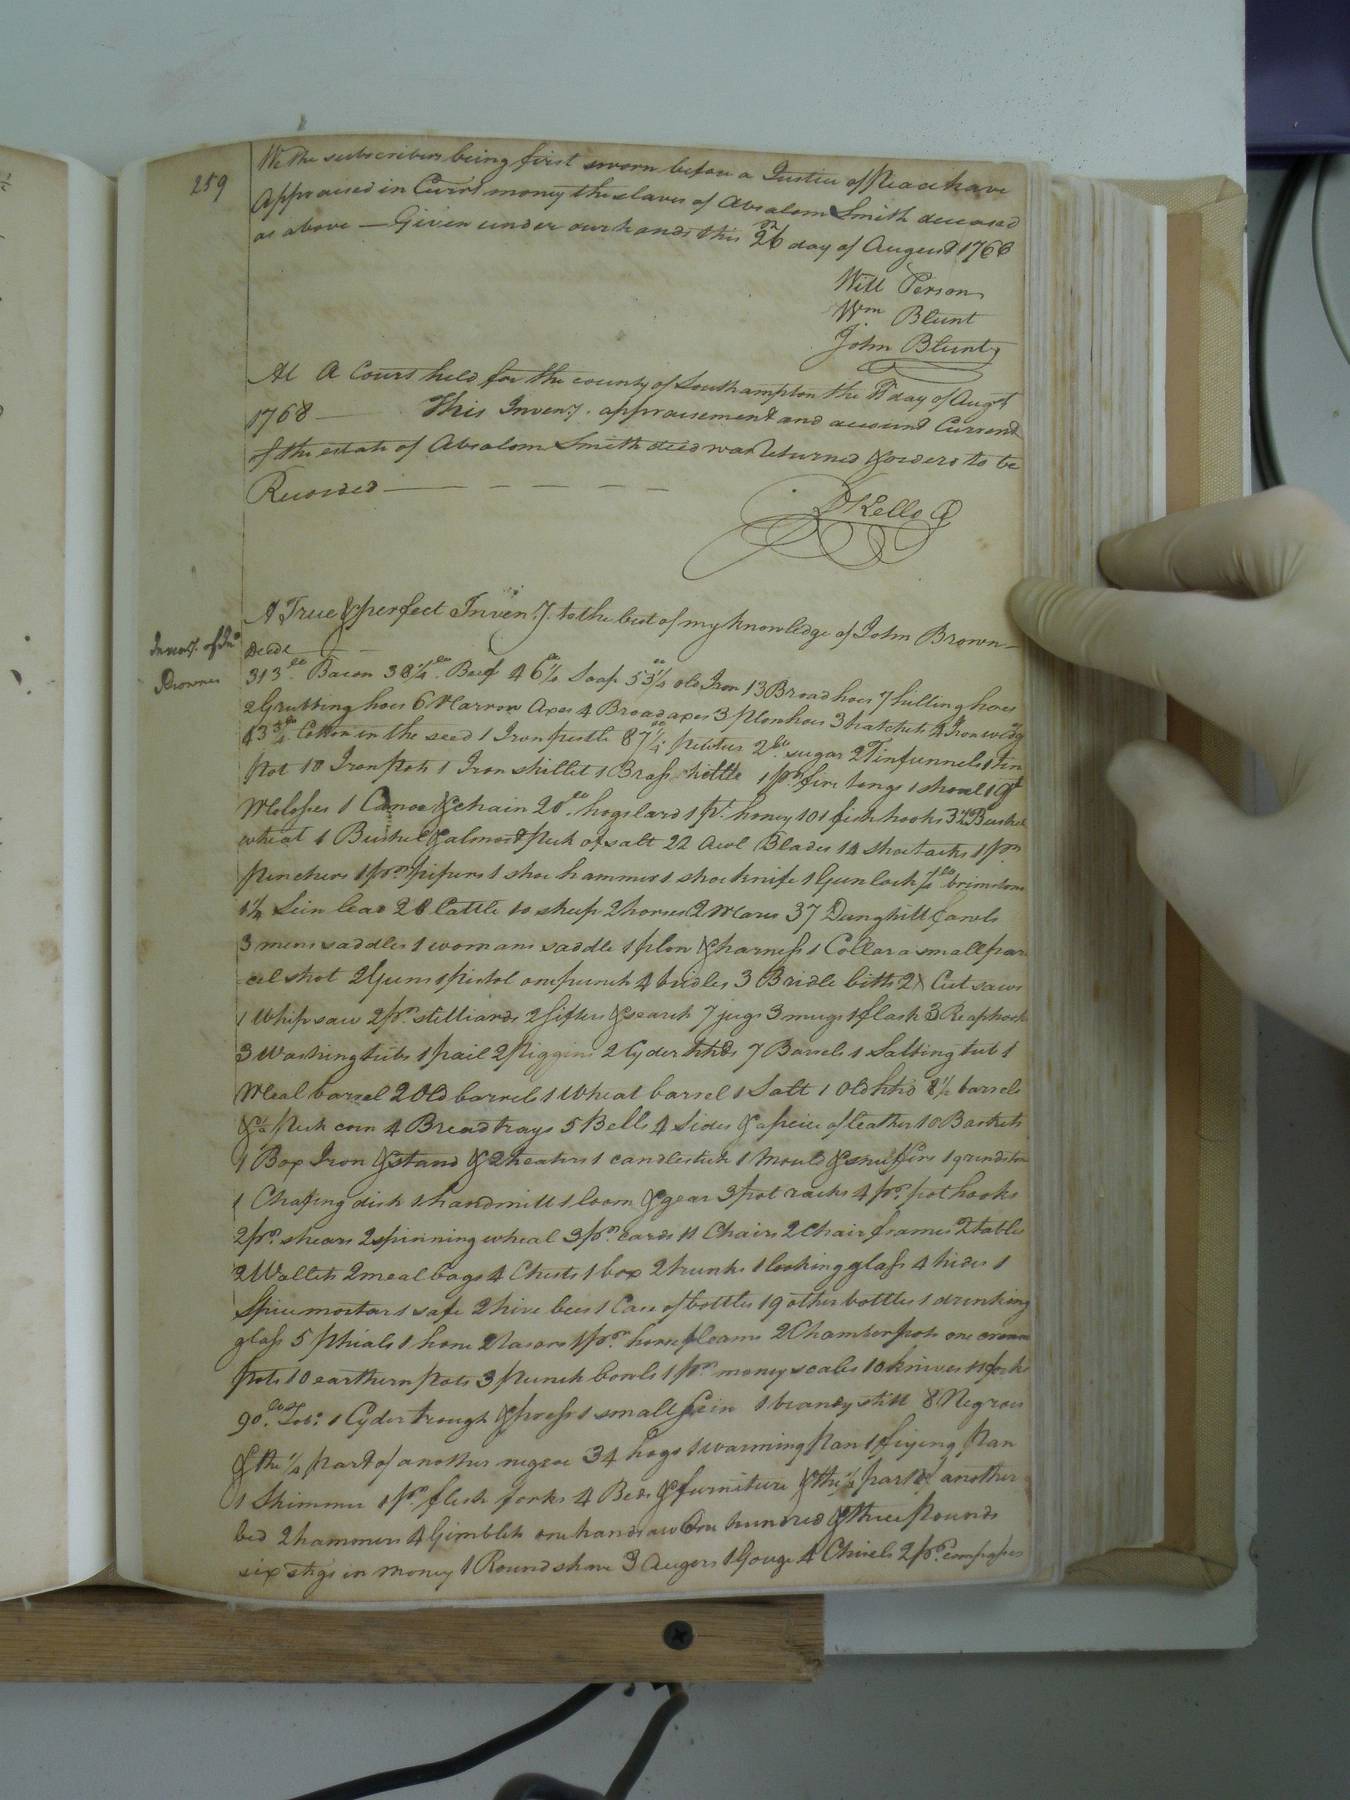 259
We the subscribers being first sworn before a Justice of Peace have
Appraised in Currt money the slaves of Absalom Smith deceased
as above — Given under our hands this 26th day of August 1768
Will Person
Wm Blunt
John Blunt
At A Court held for the county of Southampton the day of Augst
1768 — This Inveny. appraisement and account Current
of the estate of Absalom Smith decd was Returned & orderd to be
Recorded — — — — —
R Kello
A True & perfect Inveny. to the best of my knowledge of John Brown
Decd
Inveny. of Jno
Brownes
313 lb Bacon 38½ lb Beef 46½ lb Soap 53¼ lb old Iron 13 Broad hoes 7 hilling hoes
2 Grubbing hoes 6 Narrow Axes 4 Broad axes 3 plow hoes 3 hatchets 4 Iron wedg
Cotton in the seed 1 Iron pestle 87¼ lb pewter 2 lb sugar 2 Tin funnels 1 tin
Pot 10 Iron pots 1 Iron skillet 1 Brass kettle 1 pr. fire tongs 1 shovel 1 qt
Molosses 1 Canoe & chain 20 lb. hogs lard 1 pt. honey 101 fish hooks Bushel
wheat 1 Bushel & almost peck of salt 22 Awl Blades 14 shoe tacks 1 pr
Penchers 1 pr. pipers 1 shoe hammer 1 shoe knife 1 Gun lock lb brimstone
Sein lead 28 Cattle 10 sheep 2 horses 2 Mares 37 Dunghill fowls
3 mens saddles 1 womans saddle 1 plow & harness 1 Collar a small par
cel shot 2 Guns 1 pistol one punch 4 bridles 3 Bridle bitts 2 X Cut saws
1 Whip saw 2 pr. stilliards 2 sifters & search 7 jugs 3 mugs 1 flask 3 Reaphook
3 Washing tubs 1 pail 2 Piggins 2 Cyder hhds 7 Barrels 1 Salting tub 1
Meal barrel 2 Old barrels 1 Wheat barrel 1 Salt 1 Old hhd 8½ barrels
& a peck corn 4 Bread trays 5 Bells 4 Sides & a peice of leather 10 Baskets
1 Box Iron & stand & 2 heaters 1 candlestick 1 mould & snuffers 1 grindston
1 Chafing dish 1 handmill 1 loom & gear 3 pot racks 4 pr. pot hooks
2 pr. shears 2 spinning wheal 3 pr. cards 11 Chairs 2 Chair frames 2 tables
2 Wallets 2 meal bags 4 Chests 1 box 2 trunks 1 looking glass 4 hides 1
Spice mortar 1 safe 2 hive bees 1 Case of bottles 19 other bottles 1 drinking
glass 5 phials 1 hone 2 rasors 1 pr. horse fleams 2 Chamber pots one cream
Pots 10 earthern pots 3 punch bowls 1 pr. money scales 10 knives 11 forks
90 lb Tob: 1 Cyder trough & press 1 small sein 1 brandy still 8 Negroes
& the ½ part of another negroe 34 hogs 1 warming pan 1 frying pan
1 Skimmer 1 pr. flesh forks 4 Beds & furniture & the ½ part of another
bed 2 hammers 4 Gimblets one handsaw One hundred & three Pounds
six shgs in money 1 Round shave 3 Augers 1 Gouge 4 Chisels 2 pr. compasses